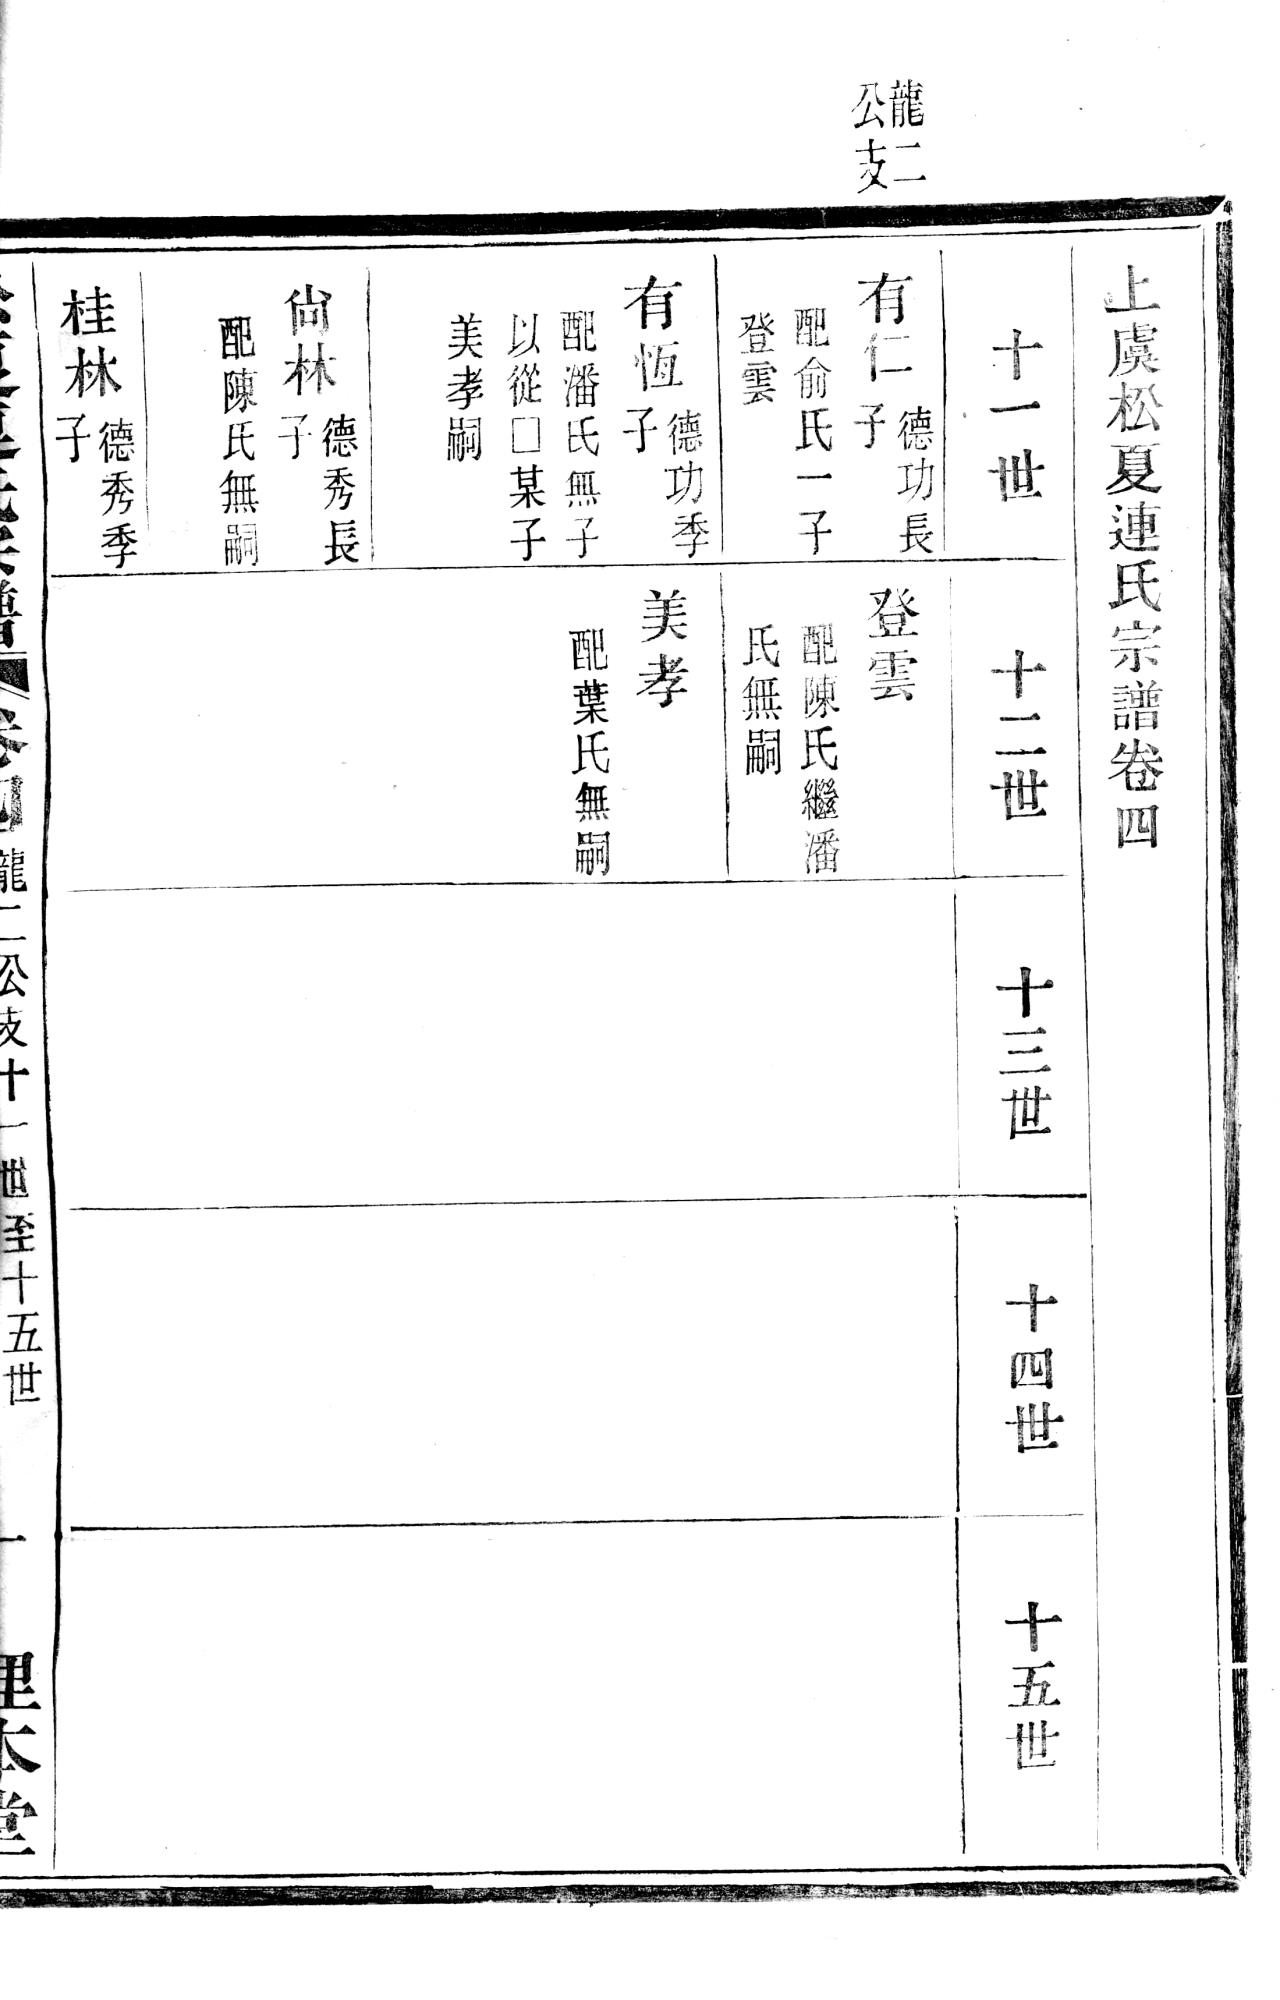 龍二
公支
上虞松夏連氏宗譜卷四
十一世
十二世
十三世
十四世
十五世
有仁
德功長
子
配俞氏一子
登雲
有恆
德功季
子
配潘氏無子
以從□某子
美孝嗣
尙林
德秀長
子
配陳氏無嗣
桂林
德秀季
子
登雲
配陳氏繼潘
氏無嗣
美孝
配葉氏無嗣
龍二公支十一世至十五世
一
理本堂